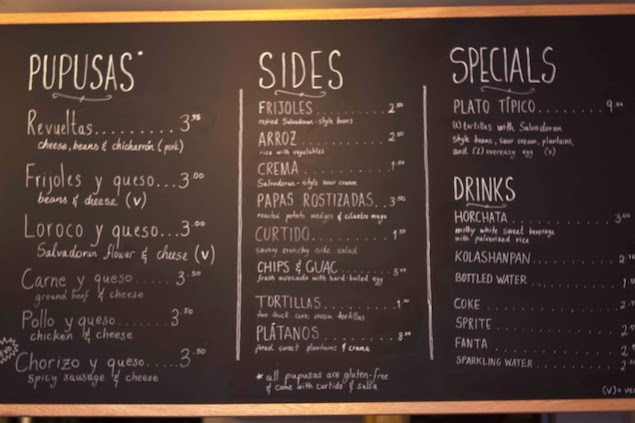 PUPUSAS*
Revueltas.........3.75
cheese, beans & chicharrón (pork)
Frijoles y queso...3.00
beans & cheese (v)
Loroco y queso......3.00
Salvadoran flower & cheese (v)
Carne y queso......3.50
ground beef & cheese
Pollo y queso.......3.50
chicken & cheese
Chorizo y queso.....3.50
spicy sausage & cheese
SIDES
FRIJOLES
refried Salvadoran-style beans
ARROZ
rice with vegetables
CREMA
Salvadoran-style sour cream
PAPAS ROSTIZADAS..3.50
roasted potato wedges & cilantro mayo
CURTIDO
savory crunchy side salad
CHIPS & GUAC
fresh avocado with hard-boiled egg
TORTILLAS
two thick corn masa tortillas
PLÁTANOS
fried sweet plantains & crema
* all pupusas are gluten-free
& come with curtido & salsa
SPECIALS
PLATO TÍPICO............9.00
(2) tortillas with Salvadoran
style beans, sour cream, plantains,
and (2) overeasy egg (v)
DRINKS
HORCHATA
milky white sweet beverage
with pulverized rice
KOLASHANPAN
BOTTLED WATER
COKE
SPRITE
FANTA
SPARKLING WATER